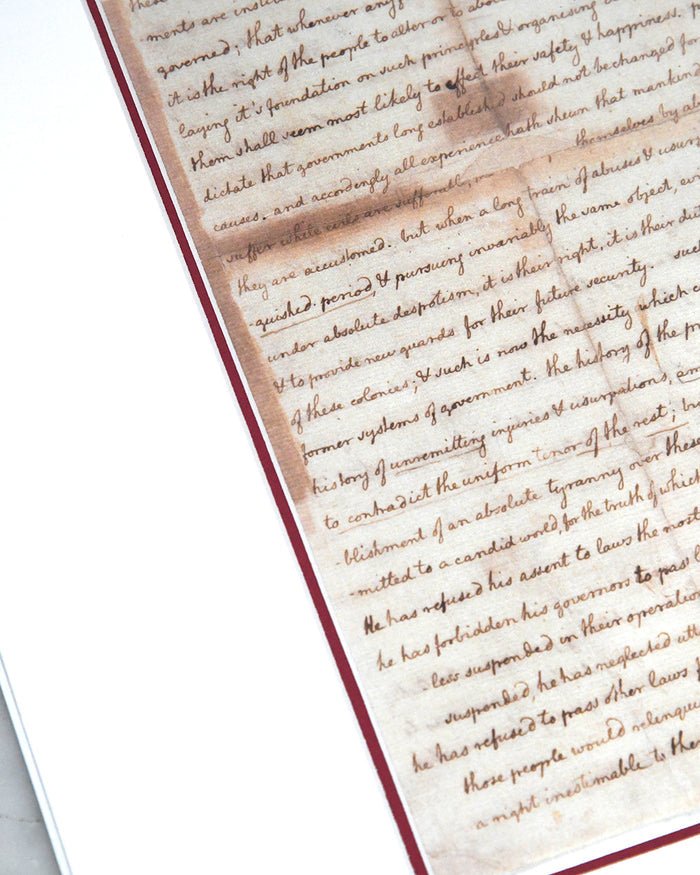 these
-ments are insti
governed; that whenever any
it is the right of the people to alter or to abo
laying it's foundation on such principles & organising
them shall seem most likely to effect their safety & happiness.
dictate that governments long established should not be changed for
causes. and accordingly all experience hath shewn that mankind
suffer while evils are sufferable, themselves by
they are accustomed. but when a long train of abuses & usurp
-guished period, & pursuing invariably the same object, evi
under absolute despotism, it is their right, it is their du
& to provide new guards for their future security. such
of these colonies; & such is now the necessity which c
former systems of government. the history of the pr
history of unremitting injuries & usurpations, am
to contradict the uniform tenor of the rest; bu
-blishment of an absolute tyranny over these
-mitted to a candid world, for the truth of which
He has refused his assent to laws the most
he has forbidden his governors to pass l
-less suspended in their operation
suspended, he has neglected utt
he has refused to pass other laws f
those people would relinqui
a right inestimable to them